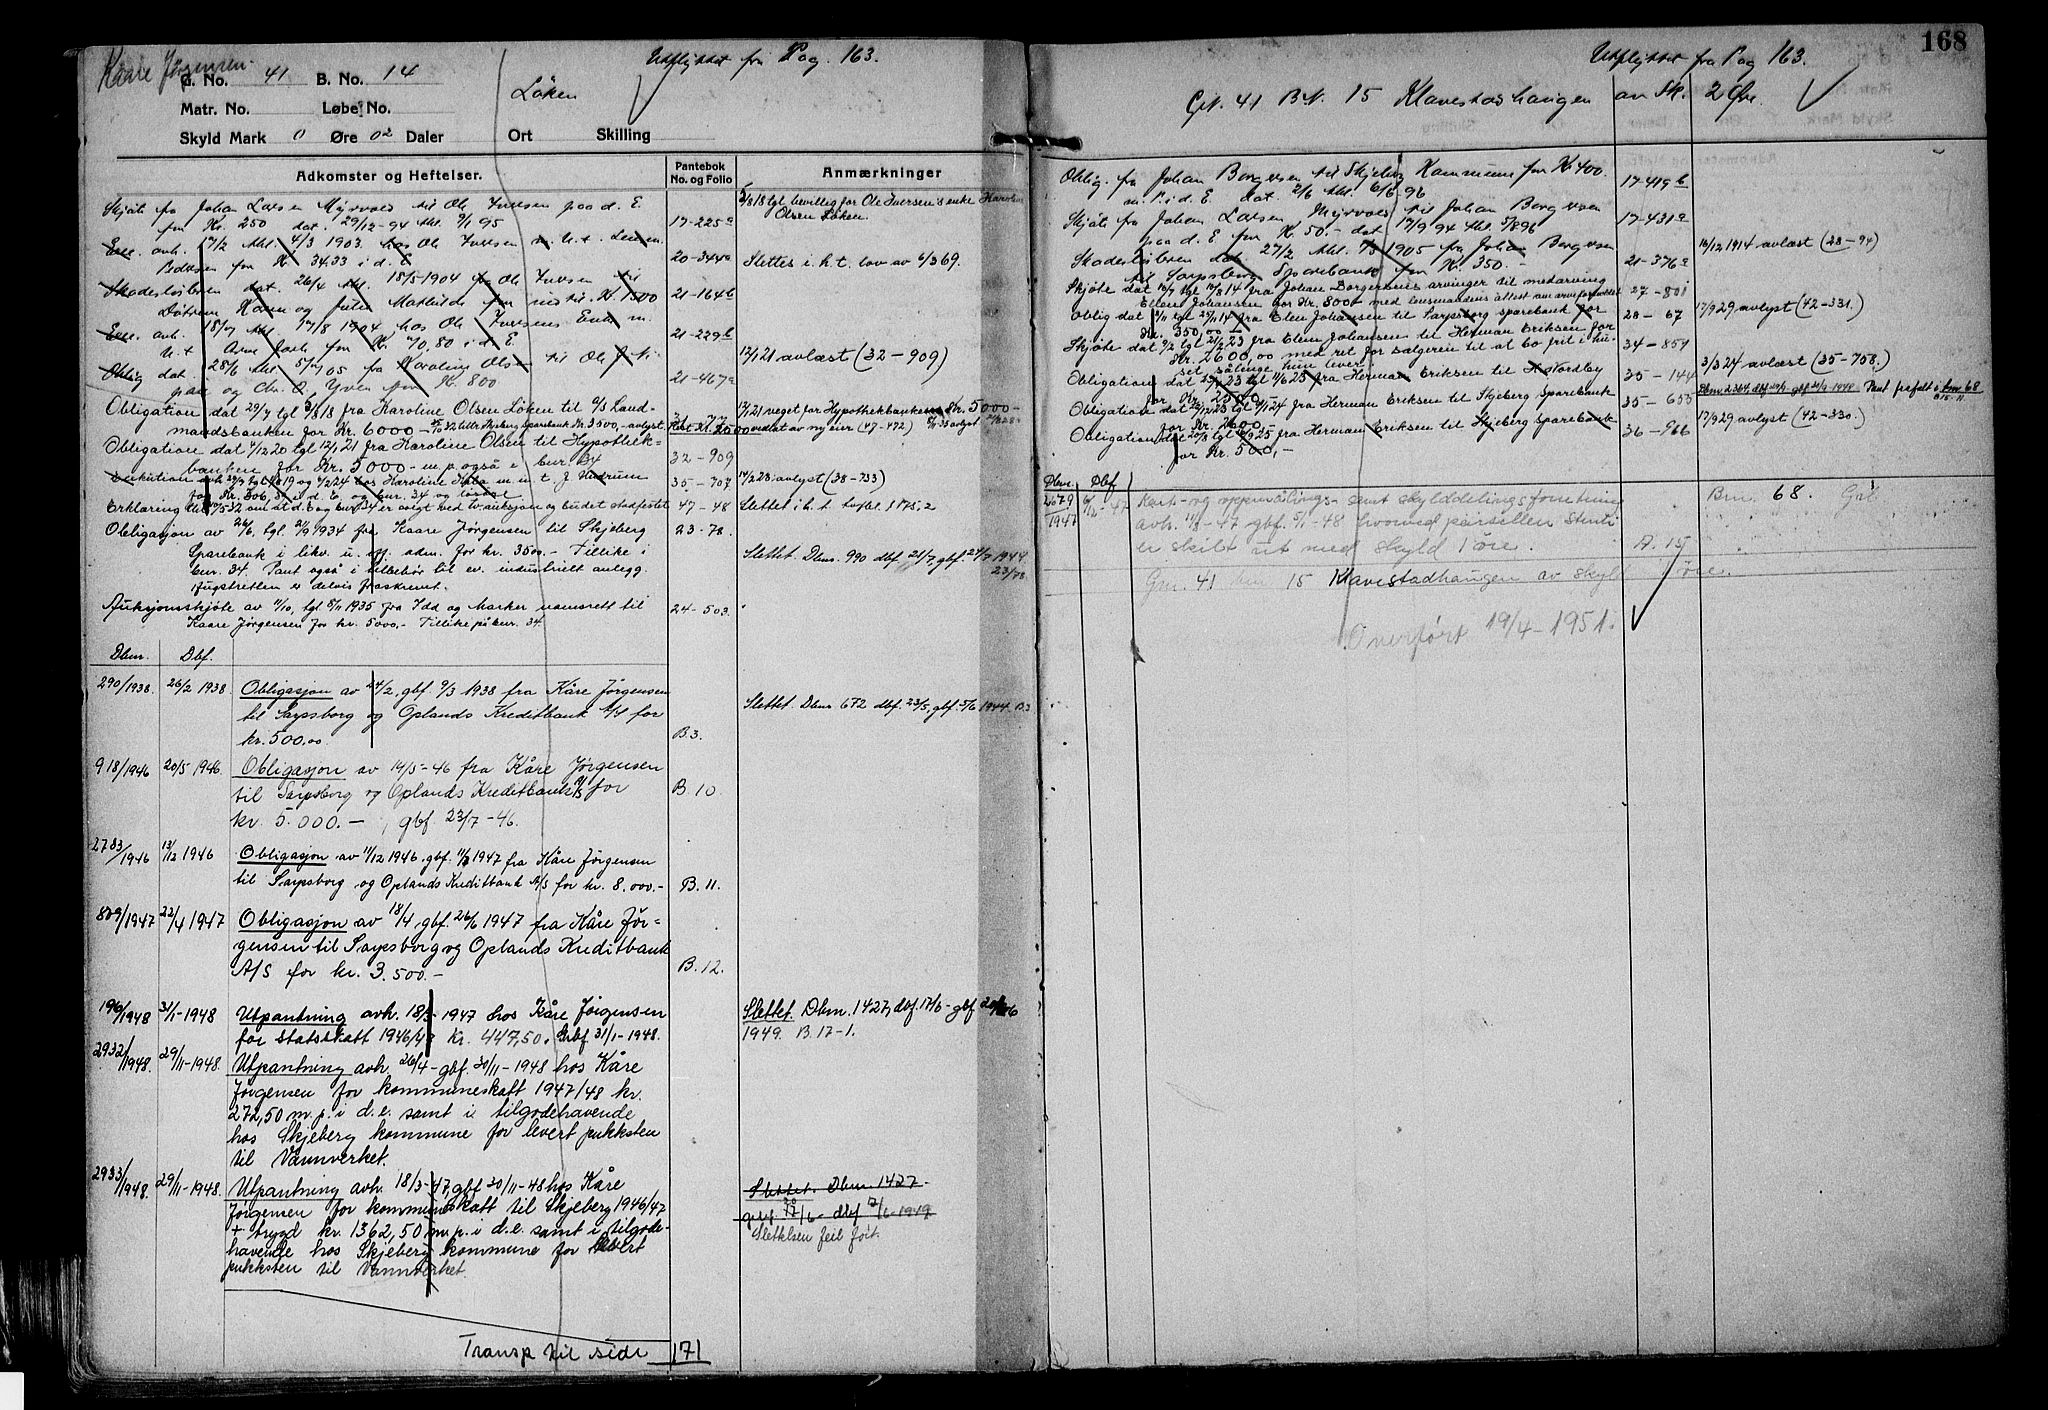 Kåre Jørgensen.
G. No. 41 B. No. 14
Utflyttet fr Pag. 163.
Matr. No. Løbe No.
Løken
Skyld Mark 0 Øre 02 Daler Ort Skilling
Adkomster og Heftelser.
Pantebok No. og Folio
Anmærkninger
Skjøte fra Johan Larsen Myrvold til Ole Iversen paa d. E
for Kr. 250 dat. 29/12-94 thl. 9/1 95
17-225a
3/8 18 tgl bevilling for Ole Iversen's enke Karoline
Olsen Løken.
Exe. avh. 17/2 thl. 4/3 1903 hos Ole Iversen
for Kr. 34.33 i d. E
20-344a
Slettes i h. t. lov av 6/3 69.
Skadesløsbrev dat. 26/4 thl. 18/5-1904 fra Ole Iversen til
Døtrene og Julie Mathilde for indtil Kr. 1500
21-164b
Exe. avh. 15/7 thl. 17/8 1904 hos Ole Iversens Enke m.
U.t for Kr. 70,80 i d. E
21-229b
Oblig dat 28/6 thl. 5/7 05 fra Karoline Olsen til Ole
og Chr. O. Yven for Kr. 800
21-467a
12/1 21 avlæst (32-909)
Obligation dat 29/7 tgl 3/8 18 fra Karoline Olsen Løken til A/S Land-
mandsbanken for Kr. 6000
12/1 21 veget for Hypothekbanken Kr. 5000-
vedlat av ny eier (47-472)
Obligation dat 4/12 20 tgl 12/1 21 fra Karoline Olsen til Hypothek-
banken for Kr. 5000- m. p. også i bnr. 34
32-909
35-708
14/2 28 avlyst (38-733)
for Kr. 306, i d. E. og bnr. 34 og løsøre
47-48
Slettet i h. t. tvfsl. § 175.2
Obligasjon av 26/6. tgl. 21/9 1934 fra Kaare Jørgensen til Skjeberg
Sparebank i likv. u. off. adm. for kr. 3500.- Tillike i
bnr. 34. Pant også i tilbehør til ev. industrielt anlegg.
Fugstretten er delvis fraskrevet.
23-78.
Slettet. Dbnr. 990 dbf. 21/7, gbf. 24/7 1944
23/78
Auksjonsskjøte av 11/10, tgl 5/11 1935 fra Idd og Marker namsrett til
Kaare Jørgensen for kr. 5000,- Tillike på bnr. 34.
24-503.
Dbnr. Dbf.
290/1938. 26/2 1938. Obligasjon av 24/2, gbf. 9/3 1938 fra Kåre Jørgensen
til Sarpsborg og Oplands Kreditbank A/S for
kr. 500.00.
B.3.
Slettet. Dbnr 672 dbf. 23/5, gbf. 5/6 1944. B.3
918/1946 20/5 1946. Obligasjon av 14/5-46 fra Kåre Jørgensen
til Sarpsborg og Oplands Kreditbank A/S for
kr. 5.000.-, gbf. 23/7-46.
B.10.
2783/1946 13/12 1946 Obligasjon av 11/12 1946, gbf. 11/2 1947 fra Kåre Jørgensen
til Sarpsborg og Oplands Kreditbank A/S for kr. 8.000.-
B.11.
829/1947 22/4 1947 Obligasjon av 18/4 gbf. 26/6 1947 fra Kåre Jør-
gensen til Sarpsborg og Oplands Kreditbank
A/S for kr. 3.500.-
B.12.
196/1948 31/1-1948 Utpantning avh. 18/3 1947 hos Kåre Jørgensen
for statsskatt 1946/47 kr. 447,50. Gbf 31/1-1948.
Slettet. Dbnr. 1427, dbf. 17/6-gbf 20/6
1949. B. 17-1.
2932/1948. 29/11-1948. Utpantning avh. 26/4-gbf. 30/11-1948 hos Kåre
Jørgensen for kommuneskatt 1947/48 kr.
272,50 m. p. i d. e. samt i tilgodehavende
hos Skjeberg kommune for levert pukksten
til Vannverket.
2933/1948. 29/11-1948. Utpantning avh. 18/3-47, gbf 30/11-48 hos Kåre
Jørgensen for kommuneskatt til Skjeberg 1946/47
+ trygd kr. 1362,50 m. p. i d. e. samt i tilgode-
havende hos Skjeberg kommune for levert
pukksten til Vannverket.
Slettet. Dbnr. 1427-
gbf. 20/6- dbf 17/6-1949
Slettelsen feil ført.
Transp til side 171
168
Utflyttet fra Pag 163.
Gr. 41 B.N. 15 Klavestadhaugen av Sk. 2 Øre.
Oblig. fra Johan Borgersen til Skjeberg Kommune for Kr 400.
m. P. i d. E. dat. 2/6 thl. 6/6 96
17-419b
Skjøte fra Johan Larsen Myrvold til Johan Borgersen
paa d. E for Kr. 50.- dat 17/9 94 thl. 5/8 96
17-431a
Skadesløsbrev dat. 27/2 thl. 1905 fra Johan Borgersen
til Sarpsborg Sparebank for Kr. 350.-
21-376a
16/12 1914 avlæst (28-94)
Skjøte dat 10/7 tgl 14/8 14 fra Johan Borgersens arvinger til medarving
Ellen Johansen for Kr. 800- med lensmandens attest om arveforholdet
27-801
Oblig dat 9/11 tgl 29/11 14 fra Elen Johansen til Sarpsborg sparebank for
Kr. 350,00-
28-67
17/9 29 avlyst (42-331.)
Skjøte dat 9/2 tgl 21/2 23 fra Elen Johansen til Herman Eriksen for
Kr. 2600,00 med ret for sælgeren til at bo frit i hu-
set sålænge hun lever.
34-851
Obligation dat 23 tgl 11/6 23 fra Herman Eriksen til K. Nordby
for Kr. 2500-
35-144
3/3 24 avlæst (35-758.)
Obligation dat 29/12 23 tgl 4/1 24 fra Herman Eriksen til Skjeberg Sparebank
for Kr. 2600.-
35-655
Pant frafalt i bnr 68
Obligation dat 20/8 tgl 25 fra Herman Eriksen til Skjeberg Sparebank
for Kr. 500,-
36-966
17/9 29 avlyst (42-330.)
Dbnr. Dbf
2679/1947 6/12-47 Kart- og oppmålings- samt skylddelingsforretning
avh. 11/8-47 gbf. 5/1-48 hvorved parsellen Stenti
er skilt ut med skyld 1 øre.
A. 15
Bnr. 68.
Gnr. 41 bnr 15 Klavestadhaugen av skyld 1 øre.
Overført 19/4-1951.